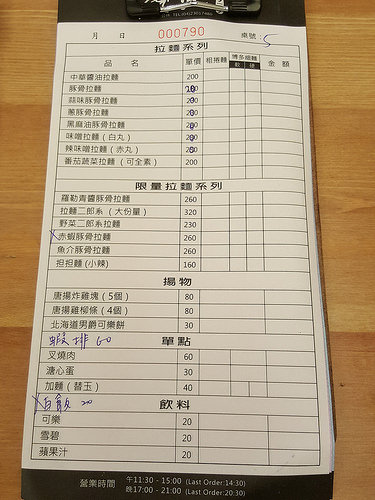 月 日 000790 桌號 5
拉麵系列
品名 單價 粗捲麵 博多細麵 金額
軟 硬
中華醬油拉麵 200
豚骨拉麵
蒜味豚骨拉麵
蔥豚骨拉麵
黑麻油豚骨拉麵
味噌拉麵(白丸)
辣味噌拉麵(赤丸)
番茄蔬菜拉麵(可全素) 200
限量拉麵系列
羅勒青醬豚骨拉麵 260
拉麵二郎系(大份量) 320
野菜二郎系拉麵 230
赤蝦豚骨拉麵 260
魚介豚骨拉麵 260
担担麵(小辣) 160
揚物
唐揚炸雞塊(5個) 80
唐揚雞柳條(4個) 80
北海道男爵可樂餅 30
蝦排 60 單點
叉燒肉 60
溏心蛋 30
加麵(替玉) 40
X白飯 20 飲料
可樂 20
雪碧 20
蘋果汁 20
營業時間 午11:30 - 15:00 (Last Order:14:30)
晚17:00 - 21:00 (Last Order:20:30)